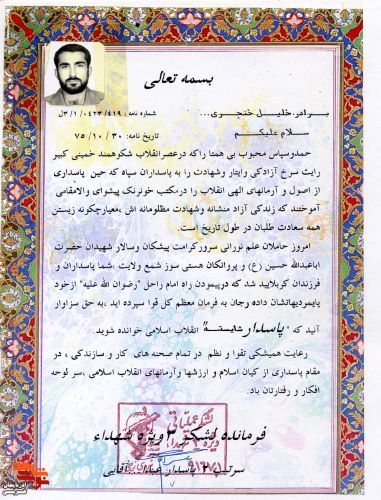 بسمه تعالی
برادر خلیل خنجری...
شماره نامه : ۴۱۹/ ۰۴۲۳ /۱ /۳ل
سلام علیکم
تاریخ نامه: ۳۰ / ۱۰ / ۷۵
حمدوسپاس محبوب بی همتا راکه درعصرانقلاب شکوهمند خمینی کبیر
رایت سرخ آزادگی وایثار وشهادت را به پاسداران سپاه که حین پاسداری
از اصول و آرمانهای الهی انقلاب را درمکتب خونرنگ پیشوای والامقامی
آموختند که زندگی آزاد منشانه وشهادت مظلومانه اش ،معیارچگونه زیستن
همه سعادت طلبان در طول تاریخ است.
امروز حاملان علم نورانی سرورکرامت پیشگان وسالار شهیدان حضرت
اباعبدالله حسین (ع) و پروانگان هستی سوز شمع ولایت ،شما پاسداران و
فرزندان کربلایید شما که درپیمودن راه امام راحل "رضوان الله علیه "ازخود
پایمردیهانشان داده وجان به فرمان معظم کل قوا سپرده اید ،به حق سزاوار
آنید که "پاسدار شایسته" انقلاب اسلامی خوانده شوید.
رعایت همیشگی تقوا و نظم در تمام صحنه های کار و سازندگی ، در
مقام پاسداری از کیان اسلام و ارزشها وآرمانهای انقلاب اسلامی ،سر لوحه
افکار و رفتارتان باد.
فرمانده لشکر ۲ ویژه شهداء
سرتیپ ۲ پاسدار